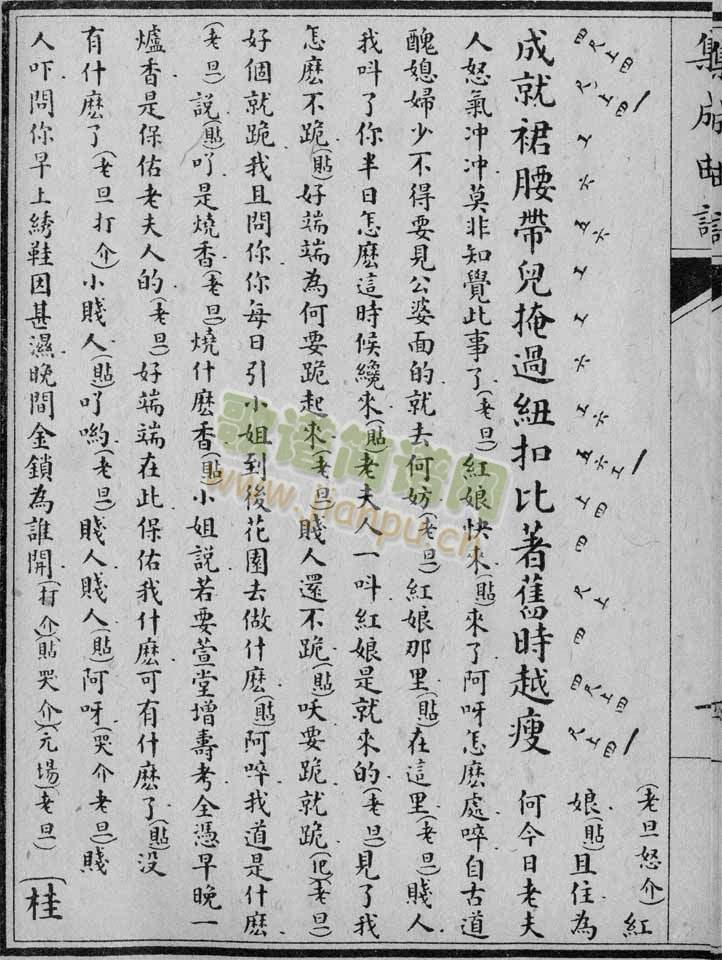 集成曲譜
成就裙腰帶兒掩過紐扣比著舊時越瘦
(老旦怒介)紅
娘(貼)且住為
何今日老夫
人怒氣冲冲莫非知覺此事了(老旦)紅娘快來(貼)來了阿呀怎麽處啐自古道
醜媳婦少不得要見公婆面的就去何妨(老旦)紅娘那里(貼)在這里(老旦)賤人
我呌了你半日怎麽這時候纔來(貼)老夫人一呌紅娘是就來的(老旦)見了我
怎麽不跪(貼)好端端為何要跪起來(老旦)賤人還不跪(貼)㕭要跪就跪(老旦)
好個就跪我且問你你每日引小姐到後花園去做什麽(貼)阿啐我道是什麽
(老旦)說(貼)吖是燒香(老旦)燒什麽香(貼)小姐說若要萱堂增壽考全憑早晚一
爐香是保佑老夫人的(老旦)好端端在此保佑我什麽可有什麽了(貼)没
有什麽了(老旦打介)小賤人(貼)吖喲(老旦)賤人賤人(貼)阿呀(哭介老旦)賤
人吓問你早上綉鞋因甚濕晚間金鎖為誰開(打介)(貼哭介)(元場)(老旦)
(桂
歌谱简谱网
www.jianpu.cn